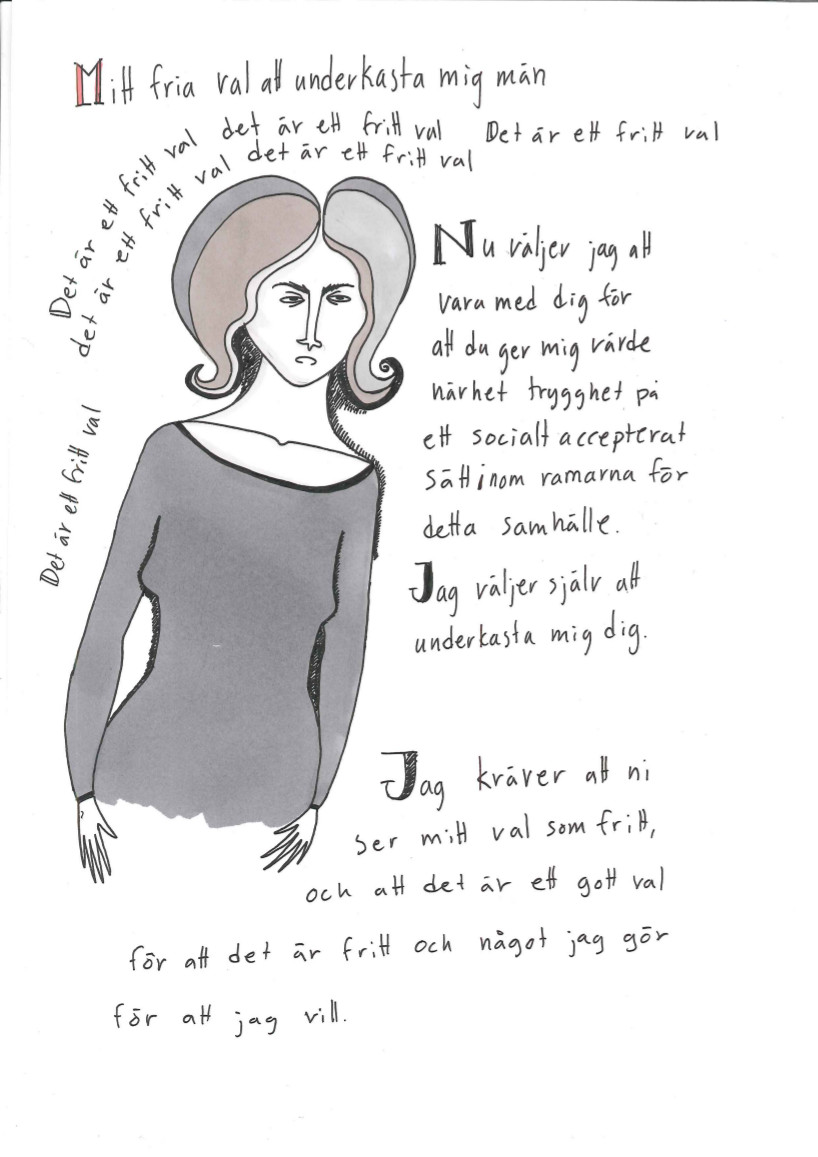 Mitt fria val att underkasta mig män
Det är ett fritt val det är ett fritt val Det är ett fritt val
det är ett fritt val det är ett fritt val
Det är ett fritt val
Nu väljer jag att
vara med dig för
att du ger mig värde
närhet trygghet på
ett socialt accepterat
sätt inom ramarna för
detta samhälle.
Jag väljer själv att
underkasta mig dig.
Jag kräver att ni
ser mitt val som fritt,
och att det är ett gott val
för att det är fritt och något jag gör
för att jag vill.